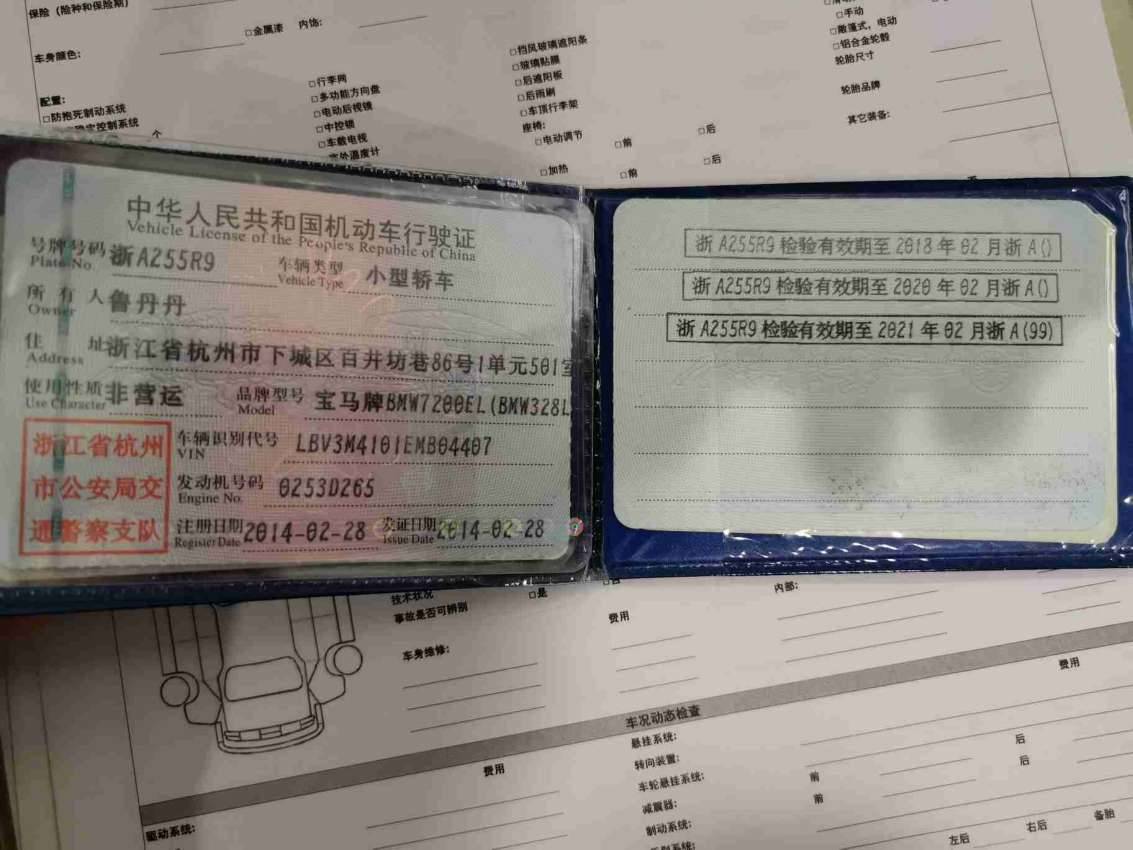 保险（险种和保险期）
□金属漆 内饰:
车身颜色:
配置:
□防抱死制动系统
稳定控制系统
个
□行李网
□多功能方向盘
□电动后视镜
□中控锁
□车载电视
室外温度计
□挡风玻璃遮阳条
□玻璃贴膜
□后遮阳板
□后雨刷
□车顶行李架
座椅:
□电动调节 □前 □后
□加热 □前 □后
□手动
□敞篷式，电动
□铝合金轮毂
轮胎尺寸
轮胎品牌
其它装备:
中华人民共和国机动车行驶证
Vehicle License of the People's Republic of China
号牌号码 浙A255R9 车辆类型 小型轿车
Plate No. Vehicle Type
所有人 鲁丹丹
Owner
住址 浙江省杭州市下城区百井坊巷86号1单元501室
Address
使用性质 非营运 品牌型号 宝马牌BMW7200EL(BMW328L
Use Character Model
浙江省杭州
市公安局交
通警察支队
车辆识别代号 LBV3M4101EMB04407
VIN
发动机号码 0253D265
Engine No.
注册日期 2014-02-28 发证日期 2014-02-28
Register Date Issue Date
浙A255R9检验有效期至2018年02月浙A()
浙A255R9检验有效期至2020年02月浙A()
浙A255R9检验有效期至2021年02月浙A(99)
技术状况
事故是否可辨别 □是
车身维修:
费用
内部:
费用
车况动态检查
费用
驱动系统:
悬挂系统:
转向装置: 后
车轮悬挂系统: 前 后
减震器: 前
制动系统:
左后 右后 备胎